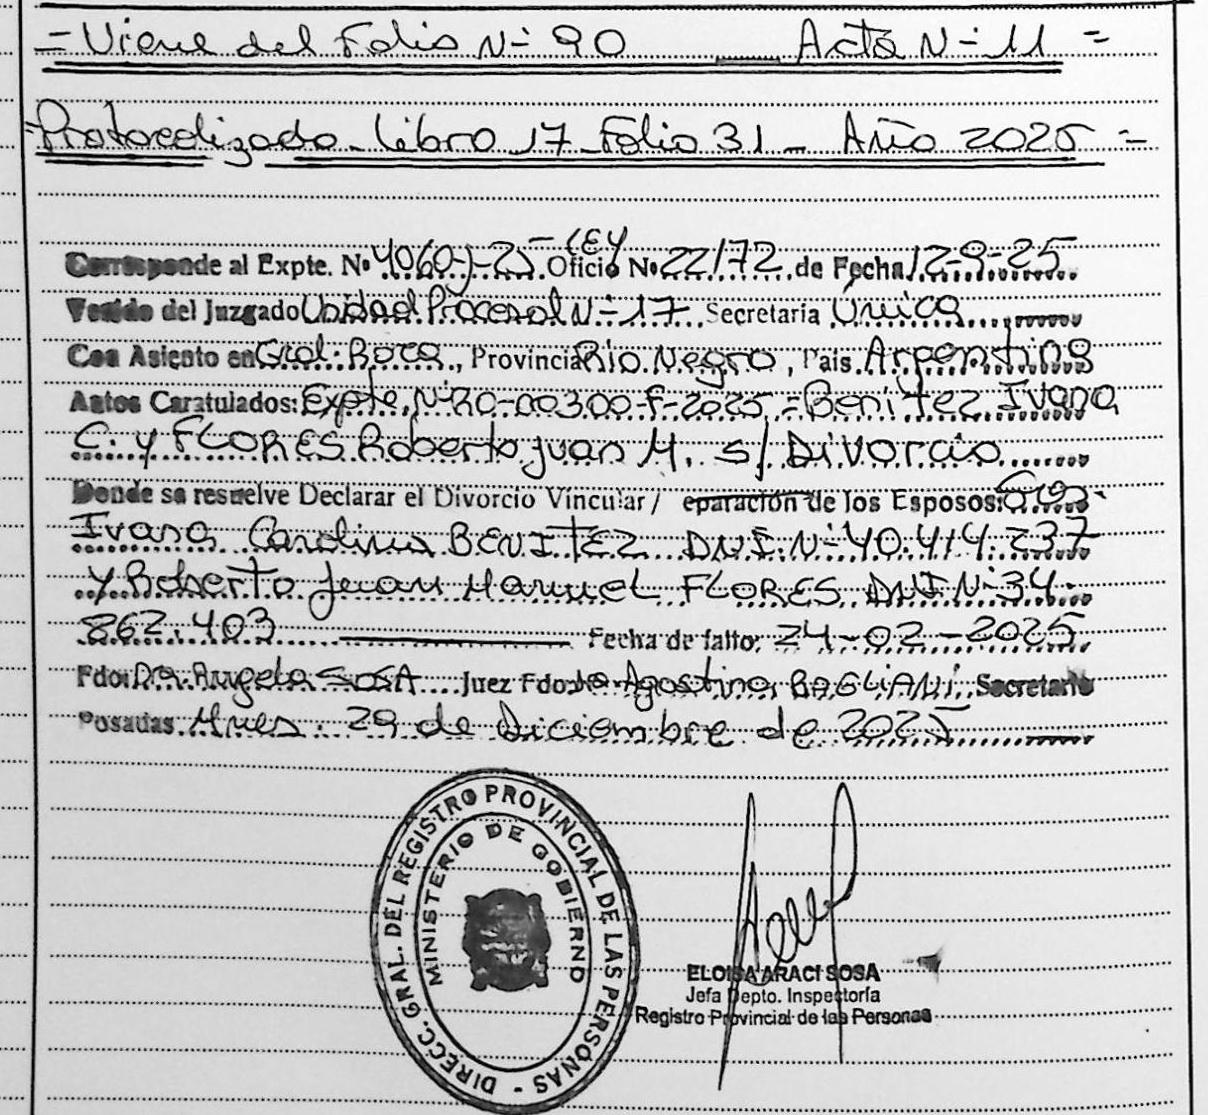 = Viene del Folio N° 90 Acta N° 11 =
= Protocolizado Libro 17 Folio 31 - Año 2025 =
Corresponde al Expte. N° 4060-J-25 - LEY
Oficio N° 22/72 de Fecha 12-9-25
Venido del Juzgado Unidad Procesal N° 17 Secretaria Unica
Con Asiento en Gral. Roca, Provincia Rio Negro, Pais Argentina
Autos Caratulados: Expte. N° RO-00300-F-2025 - Benitez Ivana
C. y FLORES Roberto Juan M. s/ Divorcio
Donde se resuelve Declarar el Divorcio Vincular / eparación de los Esposos:
Ivana Carolina BENITEZ DNI N° 40.414.237
y Roberto Juan Manuel FLORES DNI N° 34.
862.403 Fecha de fallo: 24-02-2025
Fdo: Dra. Angela SOSA Juez Fdo: Agostina BAGLIANI, Secretaria
Posadas Mnes. 29 de Diciembre de 2025
DIRECC. GRAL. DEL REGISTRO PROVINCIAL DE LAS PERSONAS -
MINISTERIO DE GOBIERNO
ELOISA ARACI SOSA
Jefa Depto. Inspectoría
Registro Provincial de las Personas